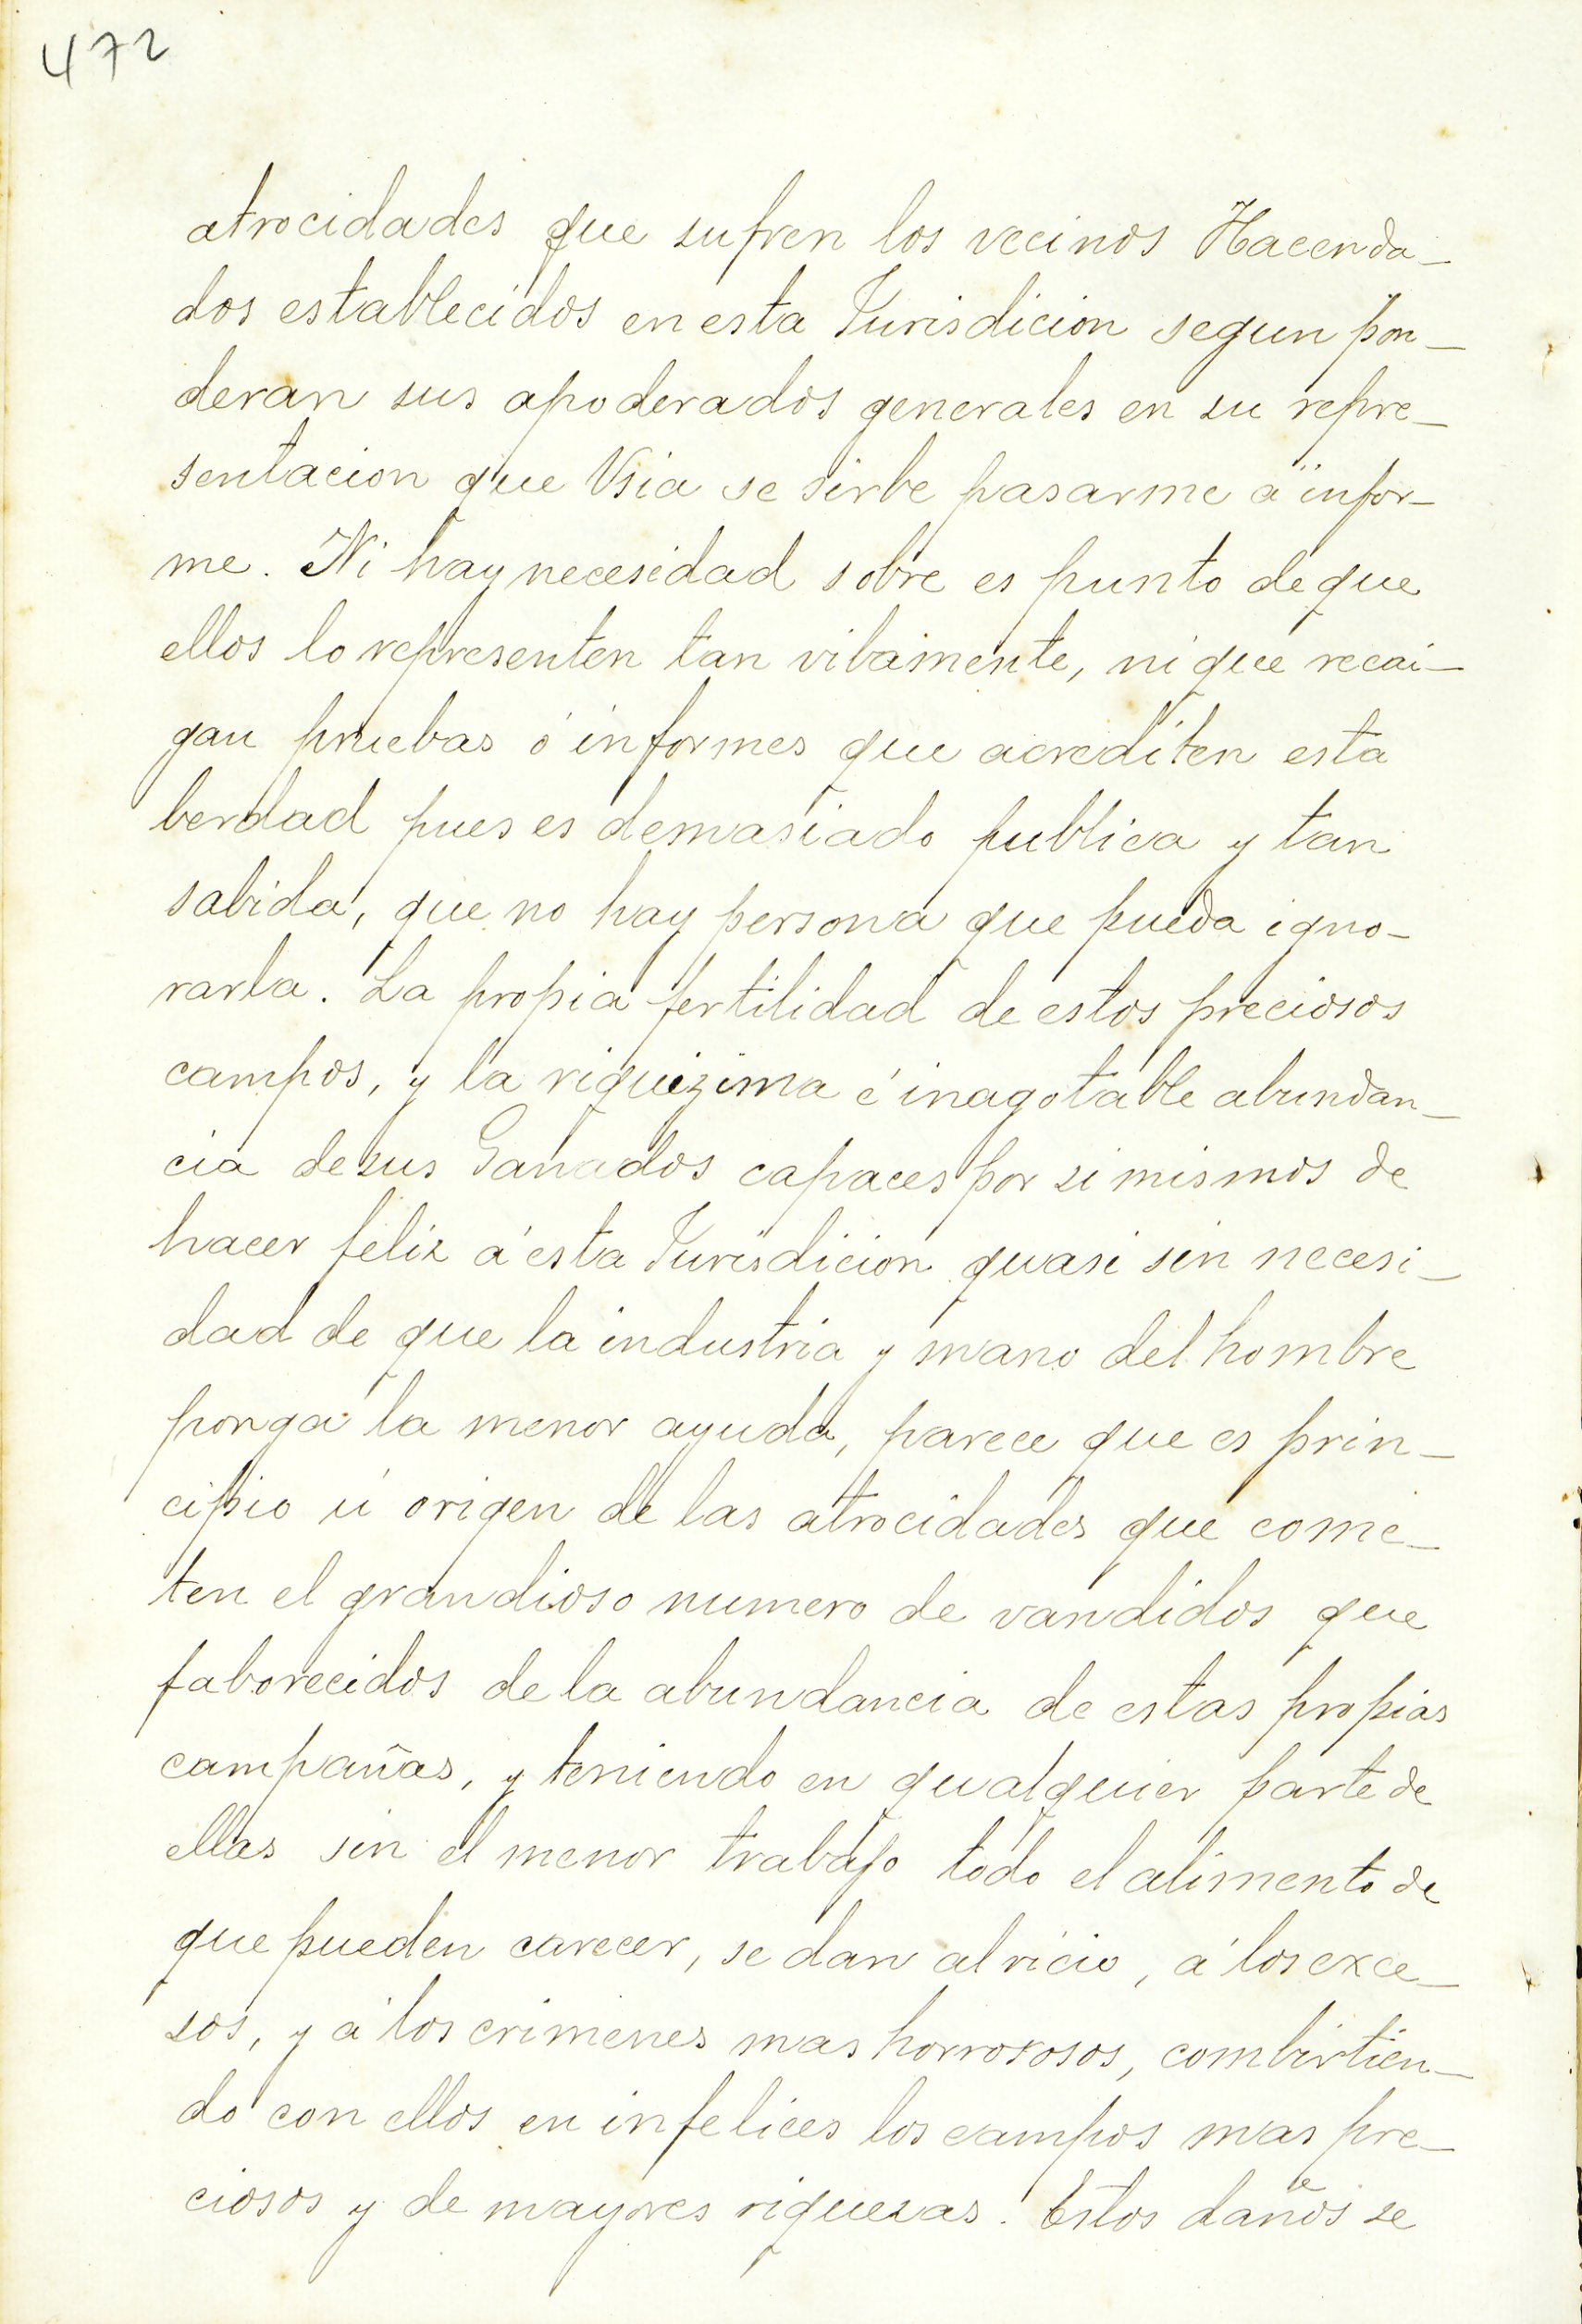 472
atrocidades que sufren los vecinos Hacenda_
dos establecidos en esta Jurisdicion segun pon_
deran sus apoderados generales en su repre_
sentacion que Vsia se sirbe pasarme á infor_
me. Ni hay necesidad sobre es punto de que
ellos lo representen tan vibamente, ni que recai_
gan pruebas ó informes que acrediten esta
berdad pues es demasiado publica y tan
sabida, que no hay persona que pueda igno_
rarla. La propia fertilidad de estos preciosos
campos, y la riquizima é inagotable abundan_
cia de sus Ganados capaces por si mismos de
hacer feliz á esta Jurisdicion quasi sin necesi_
dad de que la industria y mano del hombre
ponga la menor ayuda, parece que es prin_
cipio ú origen de las atrocidades que come_
ten el grandioso numero de vandidos que
faborecidos de la abundancia de estas propias
campañas, y teniendo en qualquier parte de
ellas sin el menor trabajo todo el alimento de
que pueden carecer, se dan al vicio, á los exce_
sos, y á los crimenes mas horrorosos, combirtien_
do con ellos en infelices los campos mas pre_
ciosos y de mayores riquesas. Estos daños se